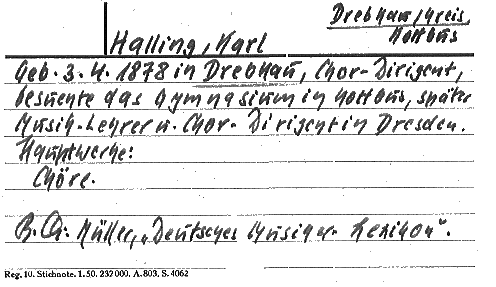 Drebkau, Kreis,
Kottbus
Halling, Karl
Geb. 3. 4. 1878 in Drebkau, Chor-Dirigent,
besuchte das Gymnasium in Kottbus, später
Musik-Lehrer u. Chor-Dirigent in Dresden.
Hauptwerke:
Chöre.
B. Q: Müller, „Deutsches Musiker-Lexikon".
Reg. 10. Stichnote. 1. 50. 237000. A. 803. S. 4062